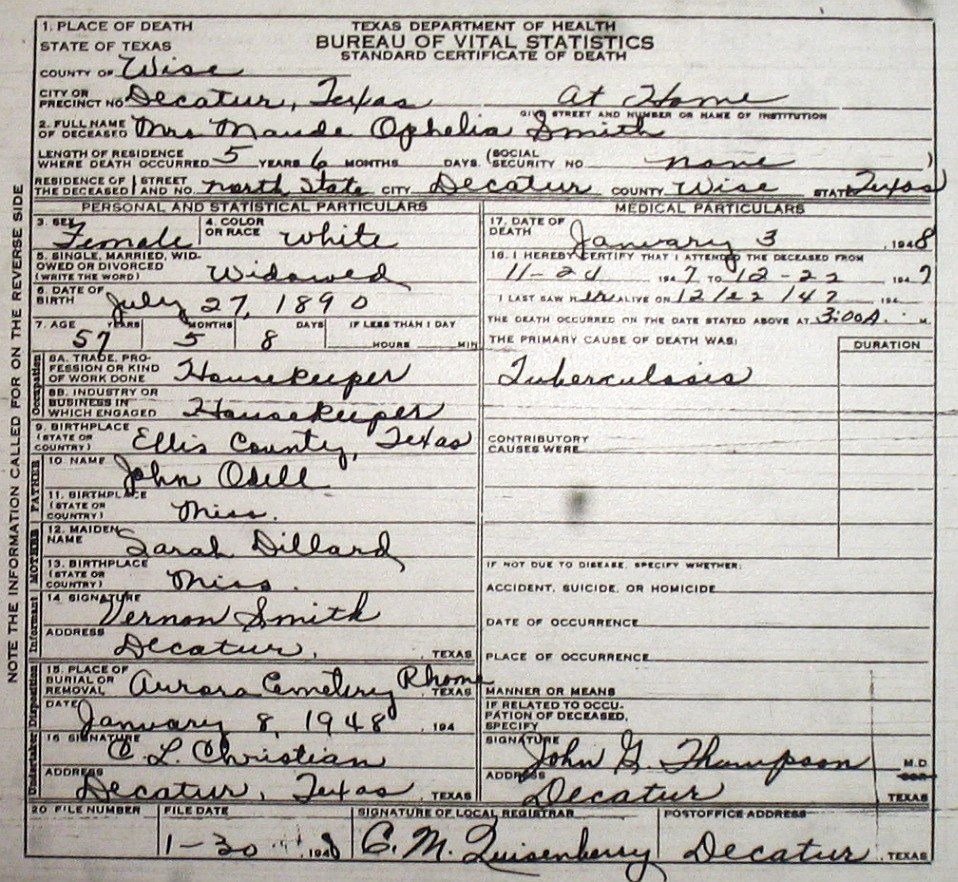 1. PLACE OF DEATH
STATE OF TEXAS
TEXAS DEPARTMENT OF HEALTH
BUREAU OF VITAL STATISTICS
STANDARD CERTIFICATE OF DEATH
COUNTY OF Wise
CITY OR PRECINCT NO. Decatur, Texas At Home
GIVE STREET AND NUMBER OR NAME OF INSTITUTION
2. FULL NAME OF DECEASED Mrs Maude Ophelia Smith
LENGTH OF RESIDENCE WHERE DEATH OCCURRED 5 YEARS 6 MONTHS DAYS. (SOCIAL SECURITY NO none )
RESIDENCE OF THE DECEASED STREET AND NO. North State CITY Decatur COUNTY Wise STATE Texas
PERSONAL AND STATISTICAL PARTICULARS
3. SEX Female 4. COLOR OR RACE White
5. SINGLE, MARRIED, WIDOWED OR DIVORCED (WRITE THE WORD) Widowed
6. DATE OF BIRTH July 27, 1890
7. AGE YEARS MONTHS DAYS IF LESS THAN 1 DAY
57 5 8 HOURS MIN
Occupation
8A. TRADE, PROFESSION OR KIND OF WORK DONE Housekeeper
8B. INDUSTRY OR BUSINESS IN WHICH ENGAGED Housekeeper
9. BIRTHPLACE (STATE OR COUNTRY) Ellis County, Texas
FATHER
10 NAME John Odell
11. BIRTHPLACE (STATE OR COUNTRY) Miss.
MOTHER
12. MAIDEN NAME Sarah Dillard
13. BIRTHPLACE (STATE OR COUNTRY) Miss.
Informant
14 SIGNATURE Vernon Smith
ADDRESS Decatur, TEXAS
Disposition
15. PLACE OF BURIAL OR REMOVAL Aurora Cemetery Rhome, TEXAS
DATE January 8, 1948, 194
Undertaker
16 SIGNATURE C. L. Christian
ADDRESS Decatur, Texas, TEXAS
MEDICAL PARTICULARS
17. DATE OF DEATH January 3, 1948
18. I HEREBY CERTIFY THAT I ATTENDED THE DECEASED FROM
11-24 1947 TO 12-22 1947
I LAST SAW her ALIVE ON 12/22/47 194
THE DEATH OCCURRED ON THE DATE STATED ABOVE AT 3:00A. M.
THE PRIMARY CAUSE OF DEATH WAS: DURATION
Tuberculosis
CONTRIBUTORY CAUSES WERE
IF NOT DUE TO DISEASE, SPECIFY WHETHER:
ACCIDENT, SUICIDE, OR HOMICIDE
DATE OF OCCURRENCE
PLACE OF OCCURRENCE
MANNER OR MEANS
IF RELATED TO OCCUPATION OF DECEASED, SPECIFY
SIGNATURE John G. Thompson M.D.
ADDRESS Decatur TEXAS
20 FILE NUMBER FILE DATE SIGNATURE OF LOCAL REGISTRAR POSTOFFICE ADDRESS
1-30 1948 C. M. Quisenberry Decatur, TEXAS
NOTE THE INFORMATION CALLED FOR ON THE REVERSE SIDE